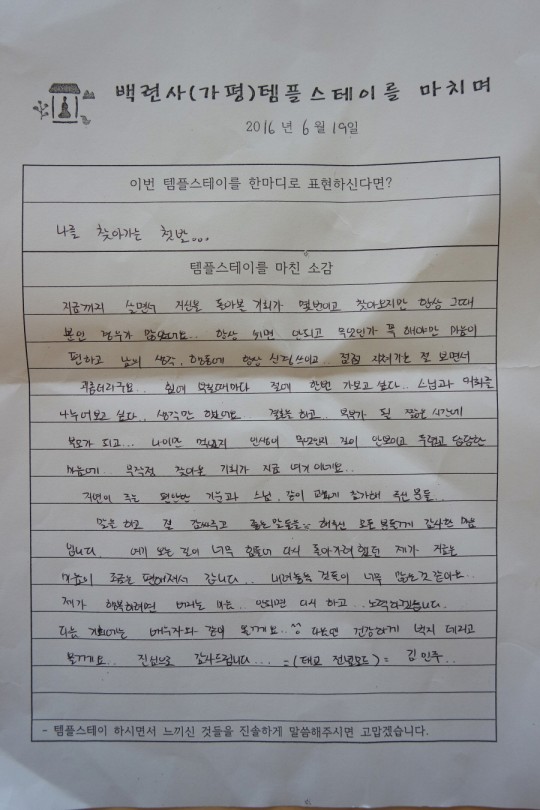 백련사(가평)템플스테이를 마치며
2016 년 6 월 19일
이번 템플스테이를 한마디로 표현하신다면?
나를 찾아가는 첫발...
템플스테이를 마친 소감
지금까지 살면서 자신을 돌아볼 기회가 몇번이고 찾아오지만 항상 그때
뿐인 경우가 많았어요.. 항상 쉬면 안되고 무엇인가 꼭 해야만 마음이
편하고 남의 생각, 행동에 항상 신경쓰이고.. 점점 지쳐가는 절 보면서
힘이 부칠때마다 절에 한번 가보고 싶다.. 스님과 대화를
나누어보고 싶다.. 생각만 했어요.. 결혼을 하고.. 부부가 된 짧은 시간에
부모가 되고... 나이만 먹었지 인생이 무엇인지 길이 안보이고 두렵고 답답한
마음에.. 무작정 찾아온 기회가 지금 여기 이네요..
자연이 주는 편안한 기분과 스님, 같이 해주신 분들..
말을 하고 절 감싸주고 좋은말씀을 해주신 모든 분들께 감사한 마음
뿐입니다. 여기 오는 길이 너무 힘들어 다시 돌아가려 했던 제가 지금은
마음이 조금은 편해져서 갑니다.. 내려놓을 것들이 너무 많은것 같아요..
제가 행복하려면 버리는 마음.. 안되면 다시 하고.. 노력하겠습니다.
다음 기회에는 배우자와 같이 올게요..^^ 다음엔 건강하게 데리고
올게요.. 진심으로 감사드립니다... =(태교 전념모드)= 김민주..
- 템플스테이 하시면서 느끼신 것들을 진솔하게 말씀해주시면 고맙겠습니다.